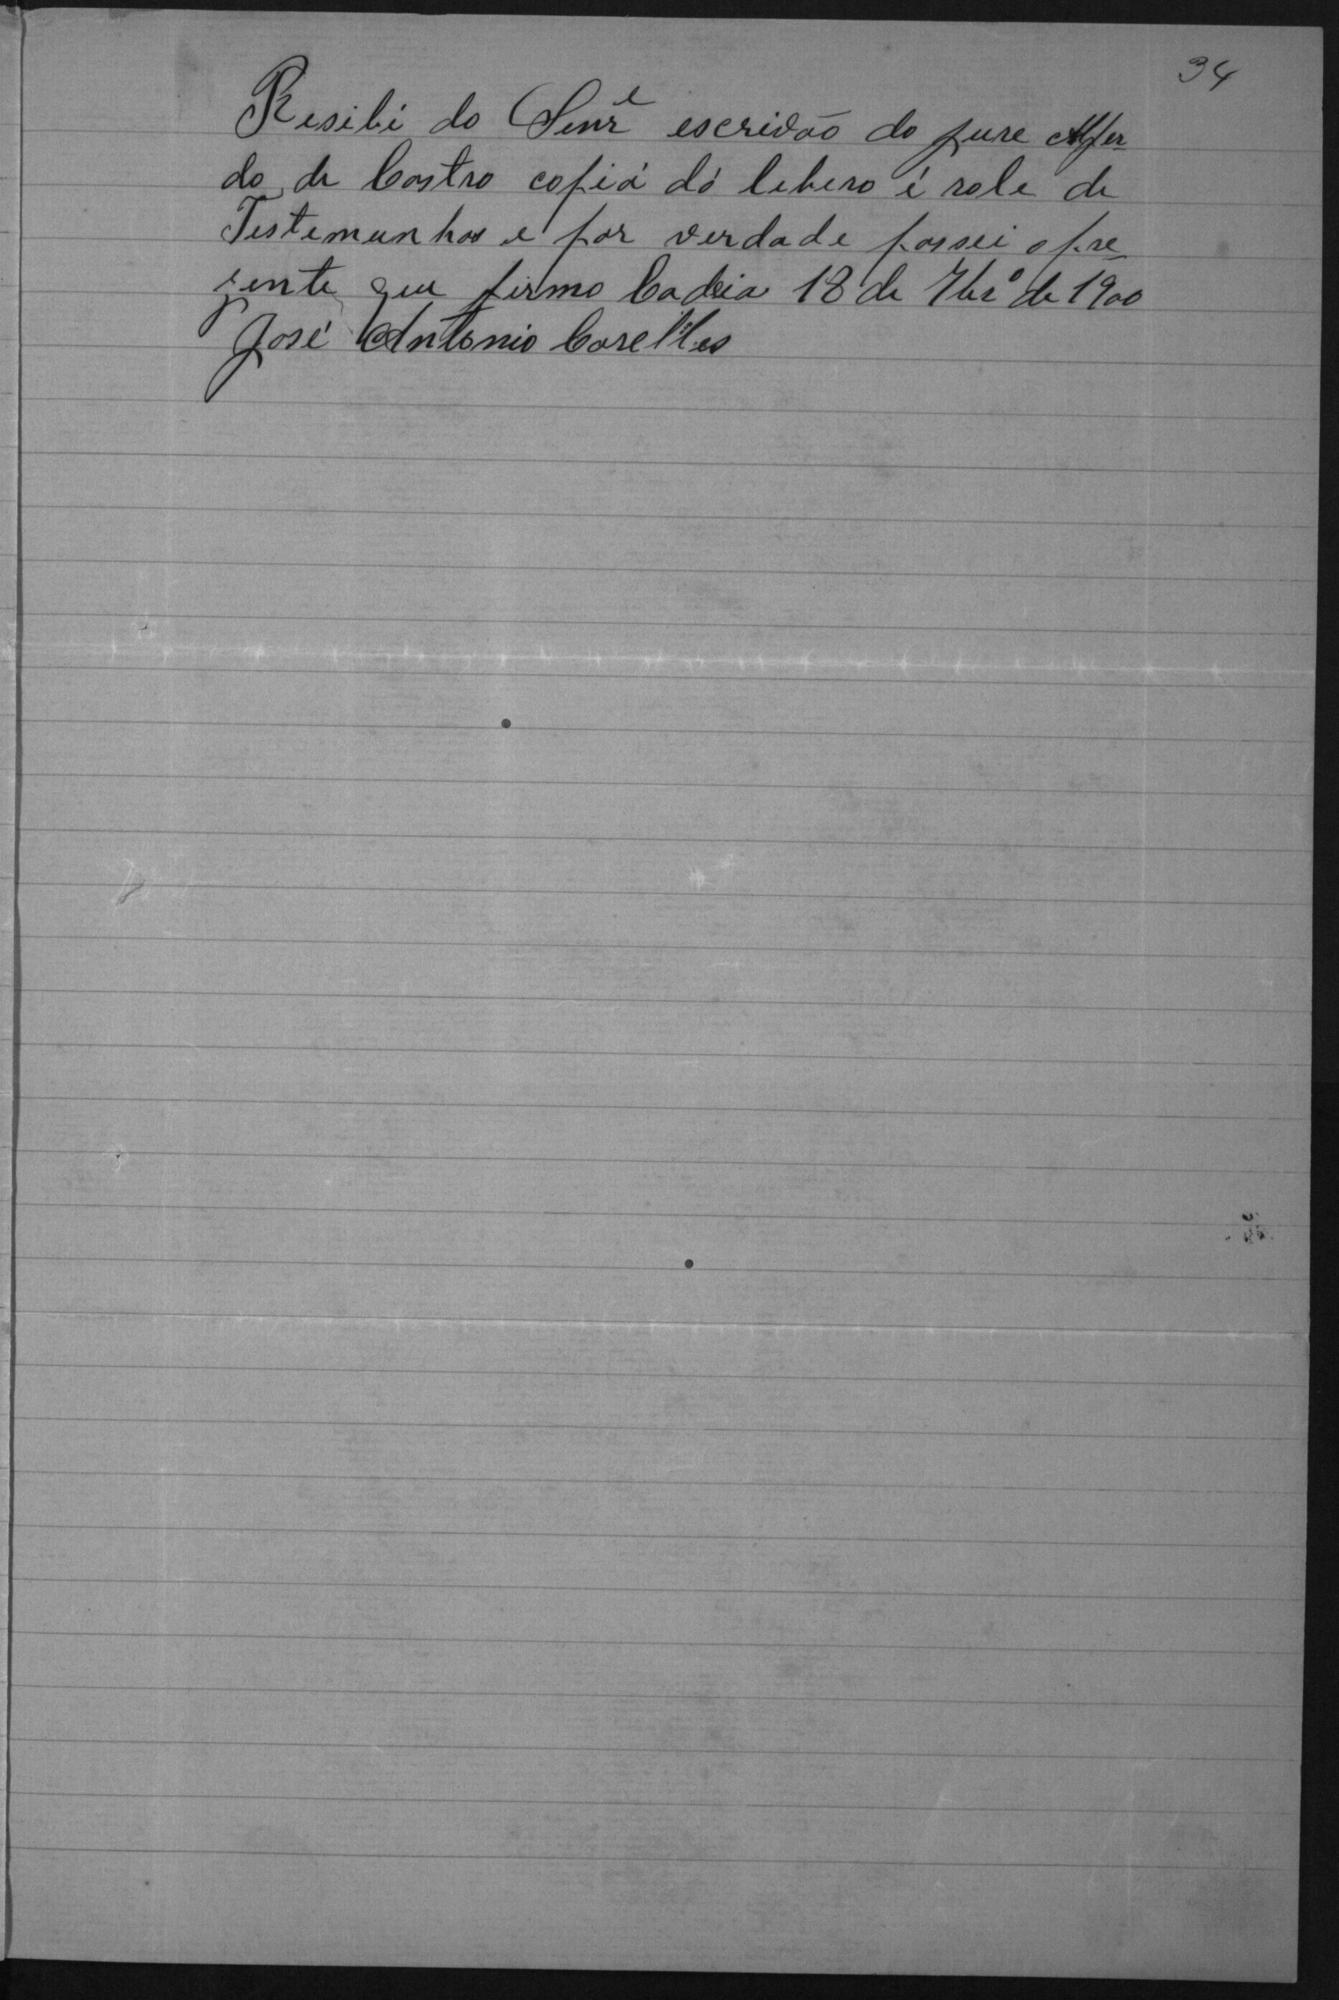 34
Resibi do Senr.e escrivão do jure Alfer
do de Castro copiá dó libero é role de
Testemunhas e por verdade passei o pre_
zente que firmo Cadeia 18 de 7br.o de 1900
José Antonio Corelles